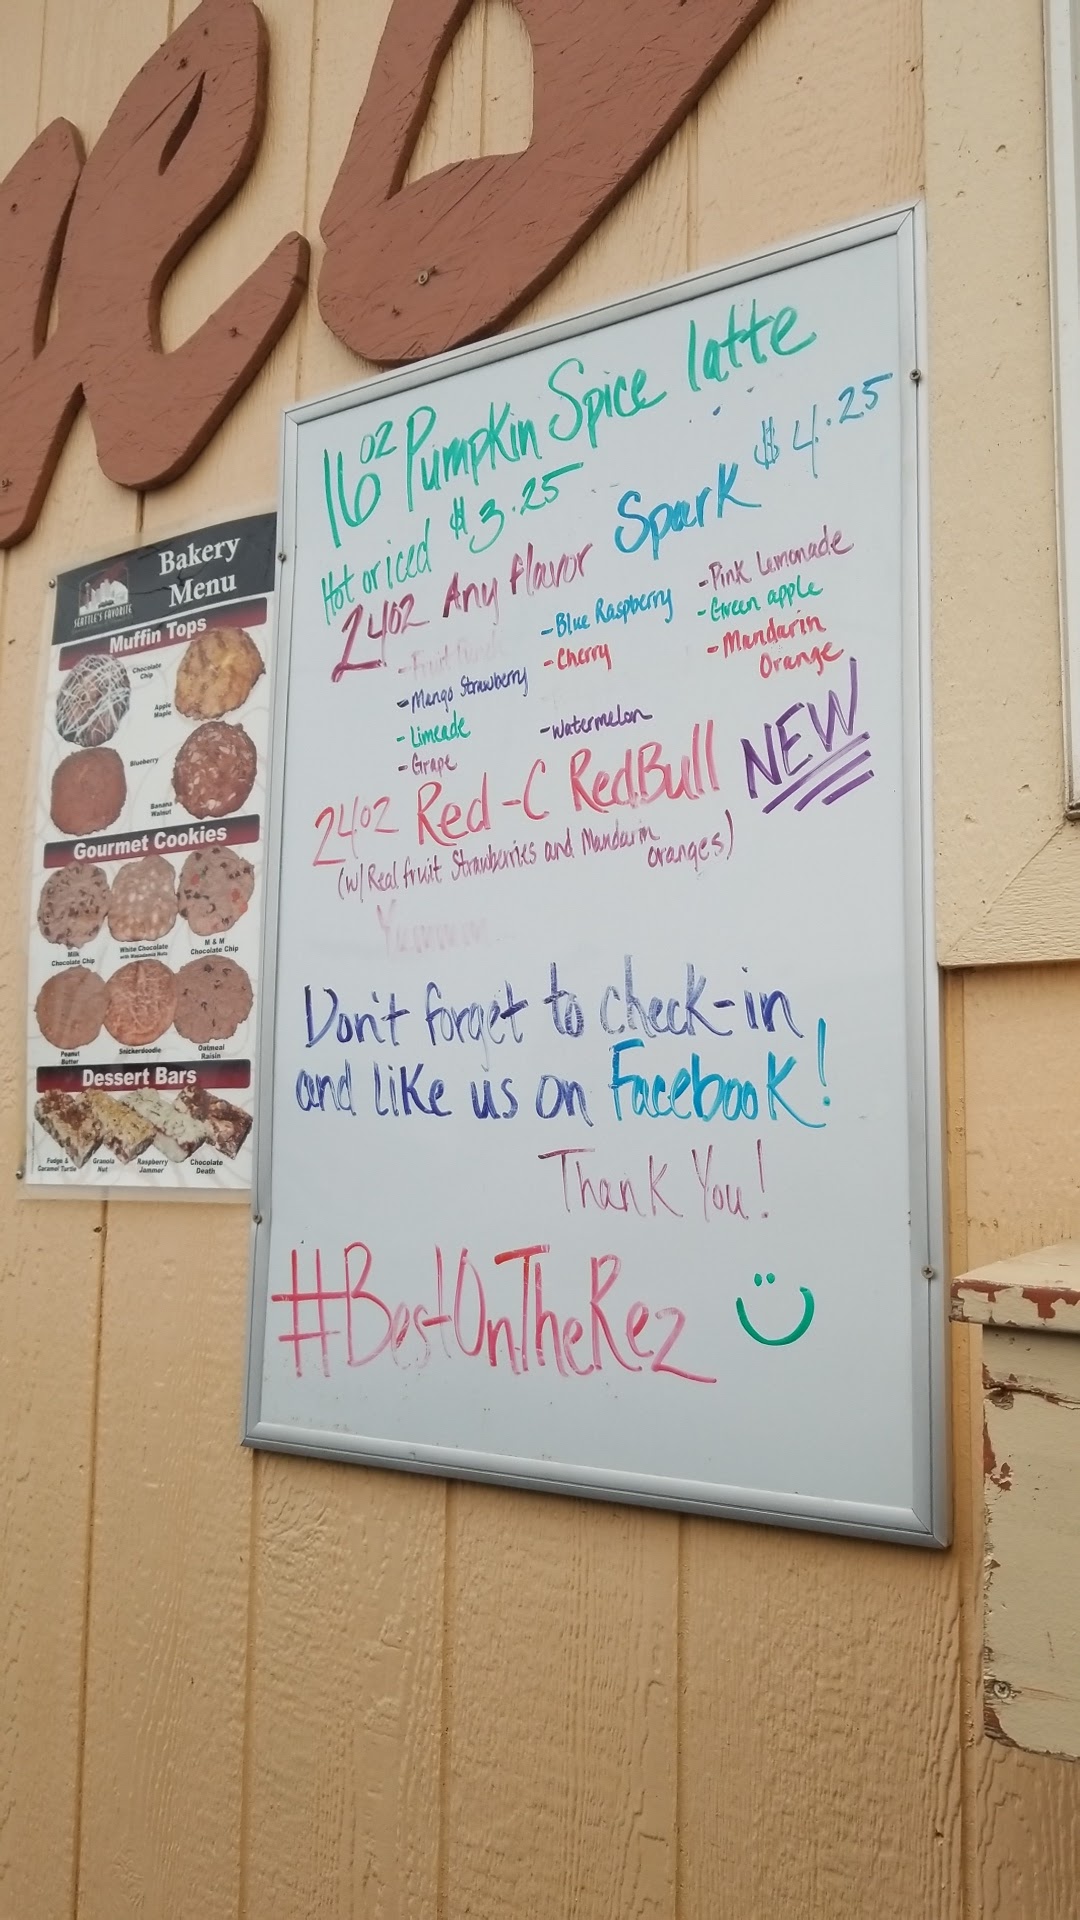 16 oz Pumpkin Spice latte
Hot or iced $3.25
24oz Any flavor Spark $4.25
- Fruit Punch
- Mango Strawberry
- Limeade
- Grape
- Blue Raspberry
- Cherry
- Watermelon
- Pink Lemonade
- Green apple
- Mandarin
Orange
24oz Red-C RedBull NEW
(w/ Real fruit Strawberries and Mandarin
oranges)
Yummm
Don't forget to check-in
and like us on Facebook!
Thank You!
#BestOnTheRez
Bakery
Menu
SEATTLE'S FAVORITE
Muffin Tops
Chocolate
Chip
Apple
Maple
Blueberry
Banana
Walnut
Gourmet Cookies
Milk
Chocolate Chip
White Chocolate
with Macadamia Nuts
M & M
Chocolate Chip
Peanut
Butter
Snickerdoodle
Oatmeal
Raisin
Dessert Bars
Fudge &
Caramel Turtle
Granola
Nut
Raspberry
Jammer
Chocolate
Death